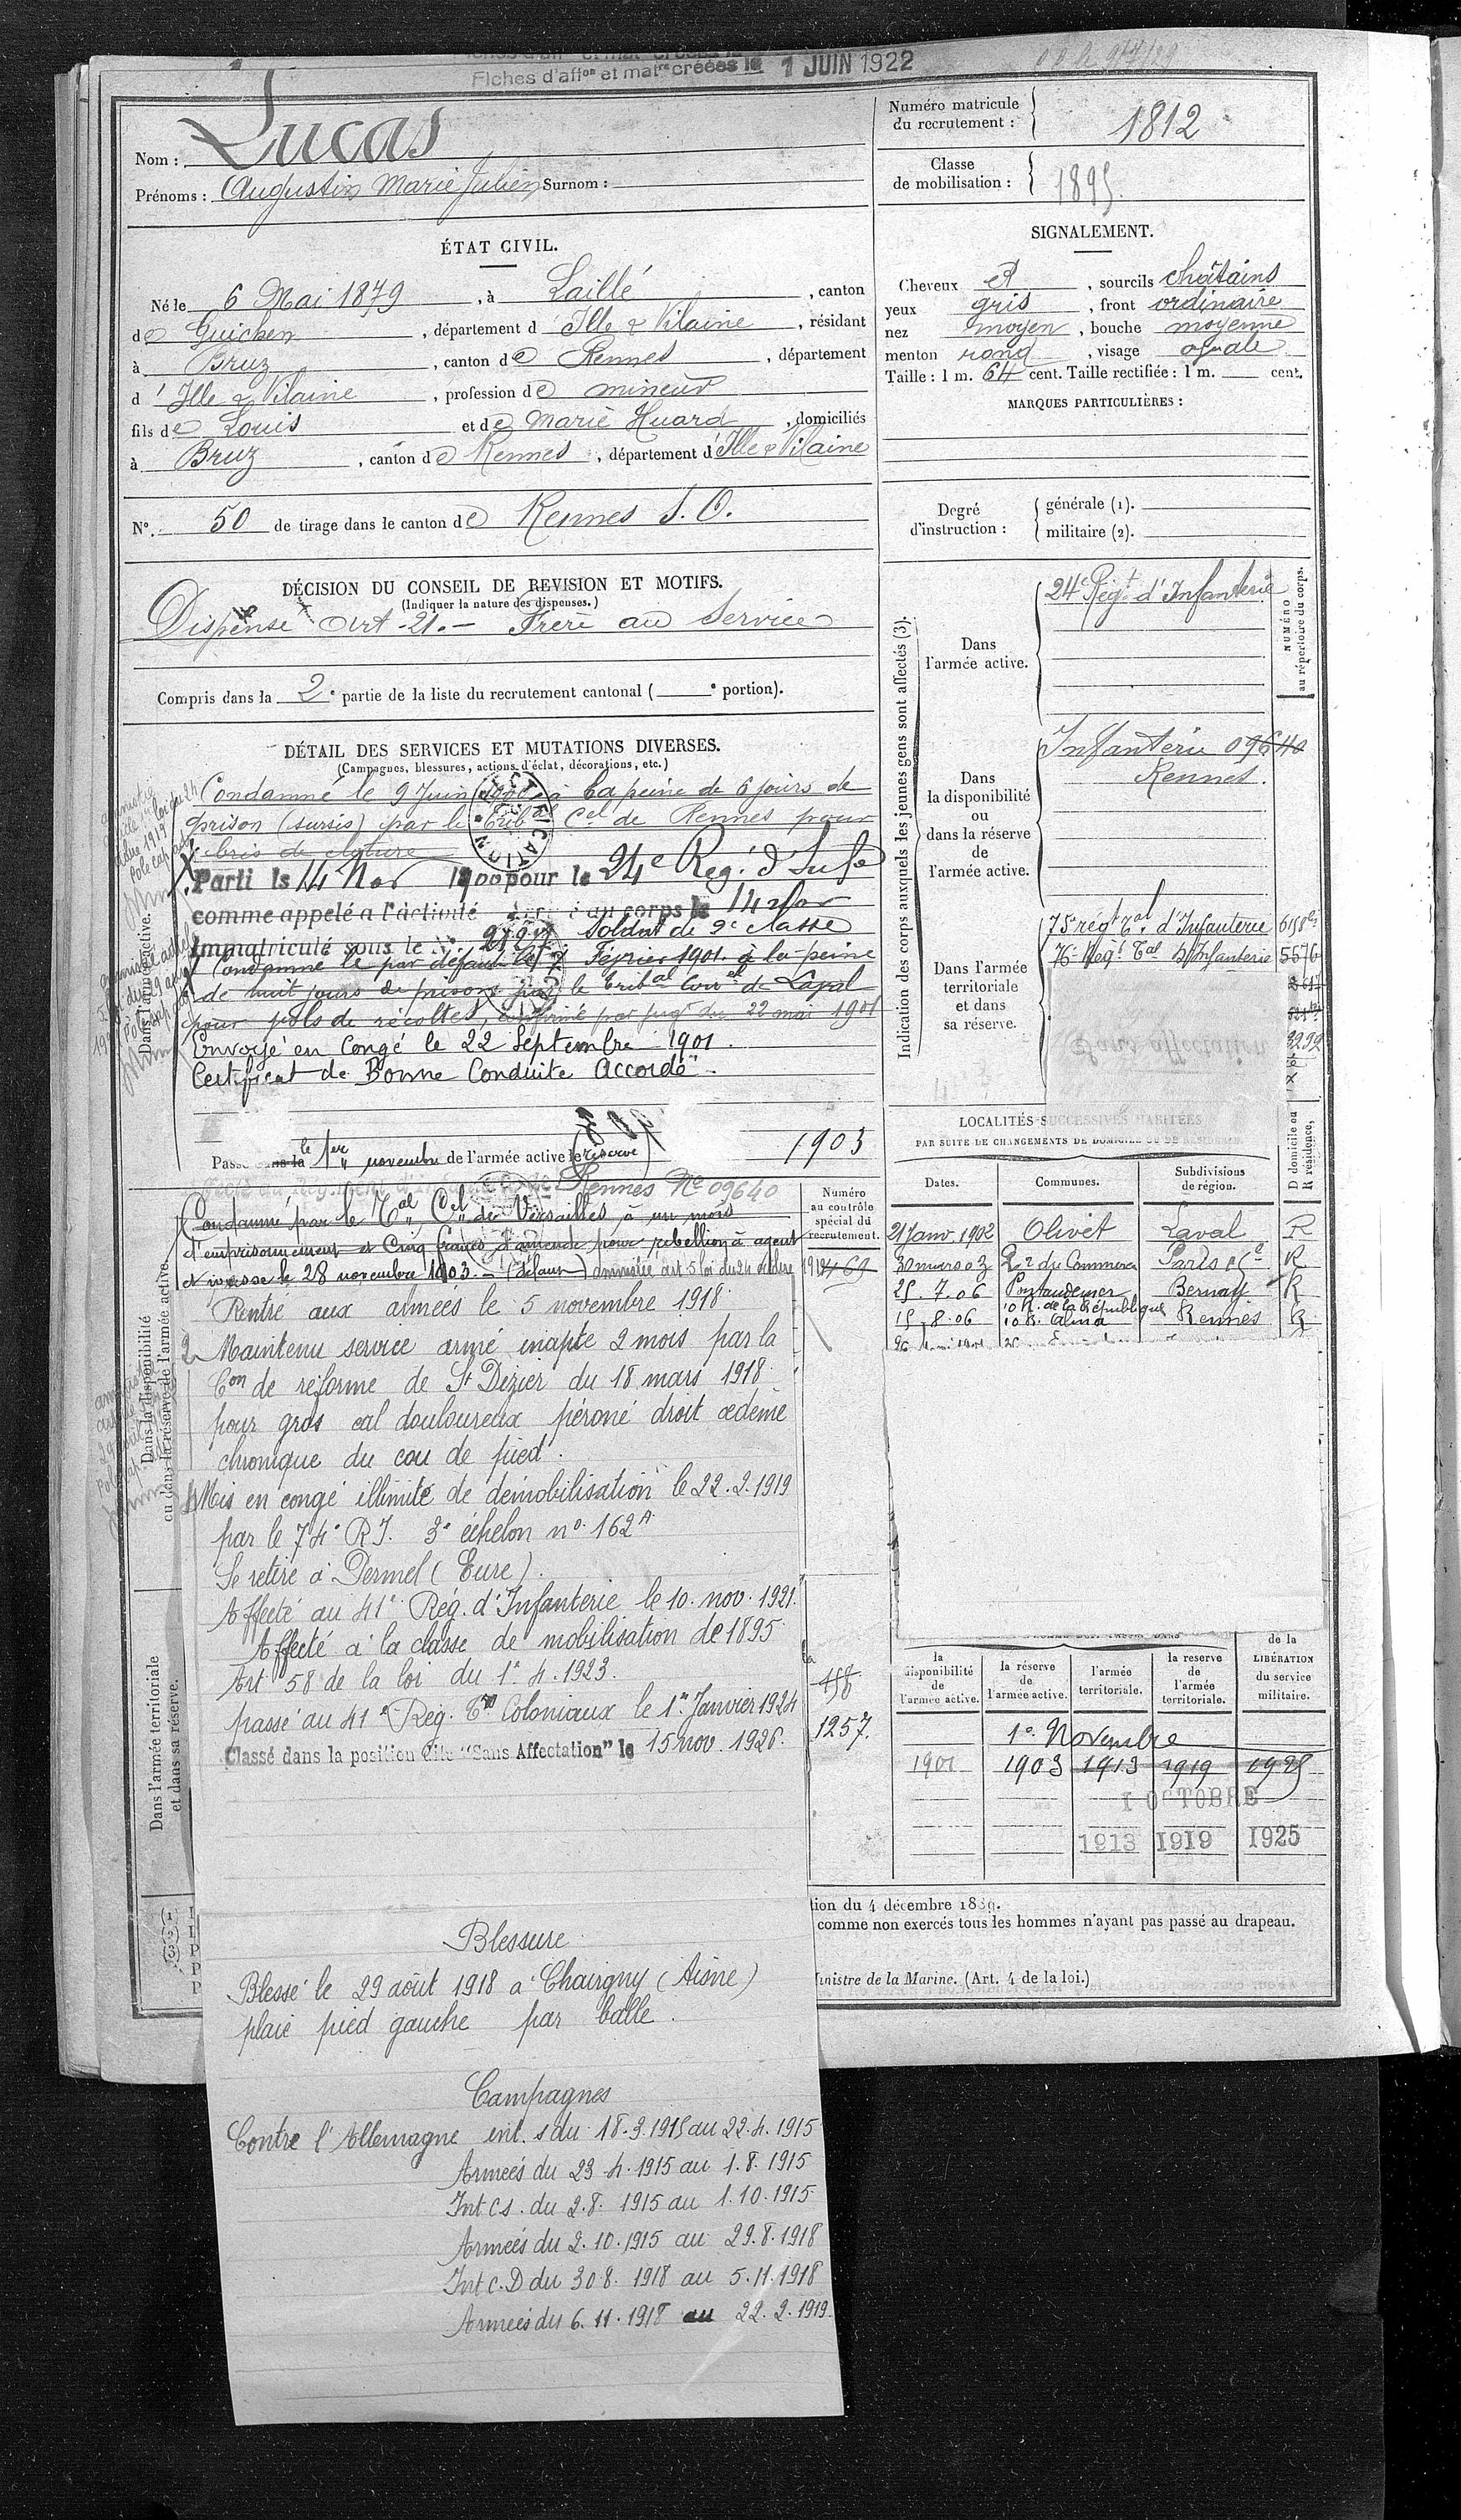 Fiches d'affon et matre créées le 1 JUIN 1922
Nom : Lucas
Prénoms : Augustin Marie Julien Surnom :
Numéro matricule
du recrutement :
1812
Classe
de mobilisation :
1895.
ÉTAT CIVIL.
Né le 6 Mai 1879, à Laillé, canton
de Guichen, département d Ille & Vilaine, résidant
à Bruz, canton de Rennes, département
d'Ille & Vilaine, profession de mineur
fils de Louis et de Marie Huard, domiciliés
à Bruz, canton de Rennes, département d'Ille & Vilaine
N°. 50 de tirage dans le canton de Rennes S. O.
SIGNALEMENT.
Cheveux et, sourcils châtains
yeux gris, front ordinaire
nez moyen, bouche moyenne
menton rond, visage ovale
Taille : 1 m. 64 cent. Taille rectifiée : 1 m. cent.
MARQUES PARTICULIÈRES :
Degré
d'instruction :
générale (1).
militaire (2).
DÉCISION DU CONSEIL DE REVISION ET MOTIFS.
(Indiquer la nature des dispenses.)
Dispensé Art. 21. - Frère au Service
Compris dans la 2e partie de la liste du recrutement cantonal ( e portion).
DÉTAIL DES SERVICES ET MUTATIONS DIVERSES.
(Campagnes, blessures, actions d'éclat, décorations, etc.)
Condamné le 9 Juin 1900 à la peine de 6 jours de
prison (sursis) par le Tribal Cel de Rennes pour
bris de cloture
Parti le 14 Nov 1900 pour le 24e Reg. d'Infie
comme appelé à l'activité au corps le 14 Nov
Immatriculé sous le Soldat de 2e classe
Condamné le par défaut le 7 Février 1901 à la peine
de huit jours de prison par le tribal Correl de Laval
pour vols de récoltes, confirmé par jugt du 22 mai 1901
Envoyé en Congé le 22 Septembre 1901.
Certificat de Bonne Conduite Accordé.
Passé le 1er novembre de l'armée active (réserve) 1903
Rennes No 09640
Condamné par le Tal Cel de Versailles à un mois
d'emprisonnement et Cinq francs d'amende pour rebellion à agent
et ivresse le 28 novembre 1903. - (défaut) amnistié art 5 loi du 24 octbre 1919
Rentré aux armées le 5 novembre 1918
2 Maintenu service armé inapte 2 mois par la
Con de réforme de St Dizier du 18 mars 1918
pour gros cal douloureux péroné droit œdème
chronique du cou de pied.
Mis en congé illimité de démobilisation le 22.2.1919
par le 74e R.I. 3e échelon no 162A
Se retire à Dermel (Eure).
Affecté au 41e Rég. d'Infanterie le 10. nov. 1921.
Affecté à la classe de mobilisation de 1895
Art 58 de la loi du 1er. 4. 1923.
passé au 41e Rég. Coloniaux le 1er Janvier 1924
Classé dans la position dite "Sans Affectation" le 15 nov. 1926.
Blessure
Blessé le 29 août 1918 à Chavigny (Aisne)
plaie pied gauche par balle.
Campagnes
Contre l'Allemagne int. s du 18.3.1915 au 22.4.1915
Armées du 23.4.1915 au 1.8.1915
Int cs. du 2.8.1915 au 1.10.1915
Armées du 2.10.1915 au 29.8.1918
Int C.D du 30.8.1918 au 5.11.1918
Armées du 6.11.1918 au 22.2.1919
Dans l'armée active.
Dans la disponibilité
ou dans la réserve de l'armée active.
Dans l'armée territoriale
et dans sa réserve.
Indication des corps auxquels les jeunes gens sont affectés (3).
Dans
l'armée active.
24e Régt d'Infanterie
NUMÉRO
au répertoire du corps.
Dans
la disponibilité
ou
dans la réserve
de
l'armée active.
Infanterie 09640
Rennes.
Dans l'armée
territoriale
et dans
sa réserve.
75e régt Tal d'Infanterie
76e Régt Tal d'Infanterie 5576
3292
Sans affectation
LOCALITÉS SUCCESSIVES HABITÉES
PAR SUITE DE CHANGEMENTS DE DOMICILE OU DE RÉSIDENCE.
D domicile ou
R résidence,
Dates.
Communes.
Subdivisions
de région.
Numéro
au contrôle
spécial du
recrutement.
469
21 Janv. 1902 Olivet Laval R
30 mars 03 Paris R
25.7.06 Pontaudemer Bernay R
15.8.06 10 R. de la République Rennes R
158
1257.
la
disponibilité
de
l'armée active.
la réserve
de
l'armée active.
l'armée
territoriale.
la reserve
de
l'armée
territoriale.
de la
LIBÉRATION
du service
militaire.
1er Novembre
1901 1903 1913 1919 1925
1 OCTOBRE
1913 1919 1925
tion du 4 décembre 1889.
comme non exercés tous les hommes n'ayant pas passé au drapeau.
inistre de la Marine. (Art. 4 de la loi.)